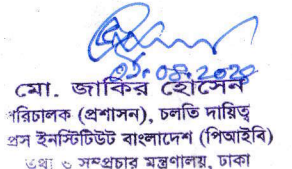 ০১.০৪.২০২৪
মো. জাকির হোসেন
পরিচালক (প্রশাসন), চলতি দায়িত্ব
প্রেস ইনস্টিটিউট বাংলাদেশ (পিআইবি)
তথ্য ও সম্প্রচার মন্ত্রণালয়, ঢাকা